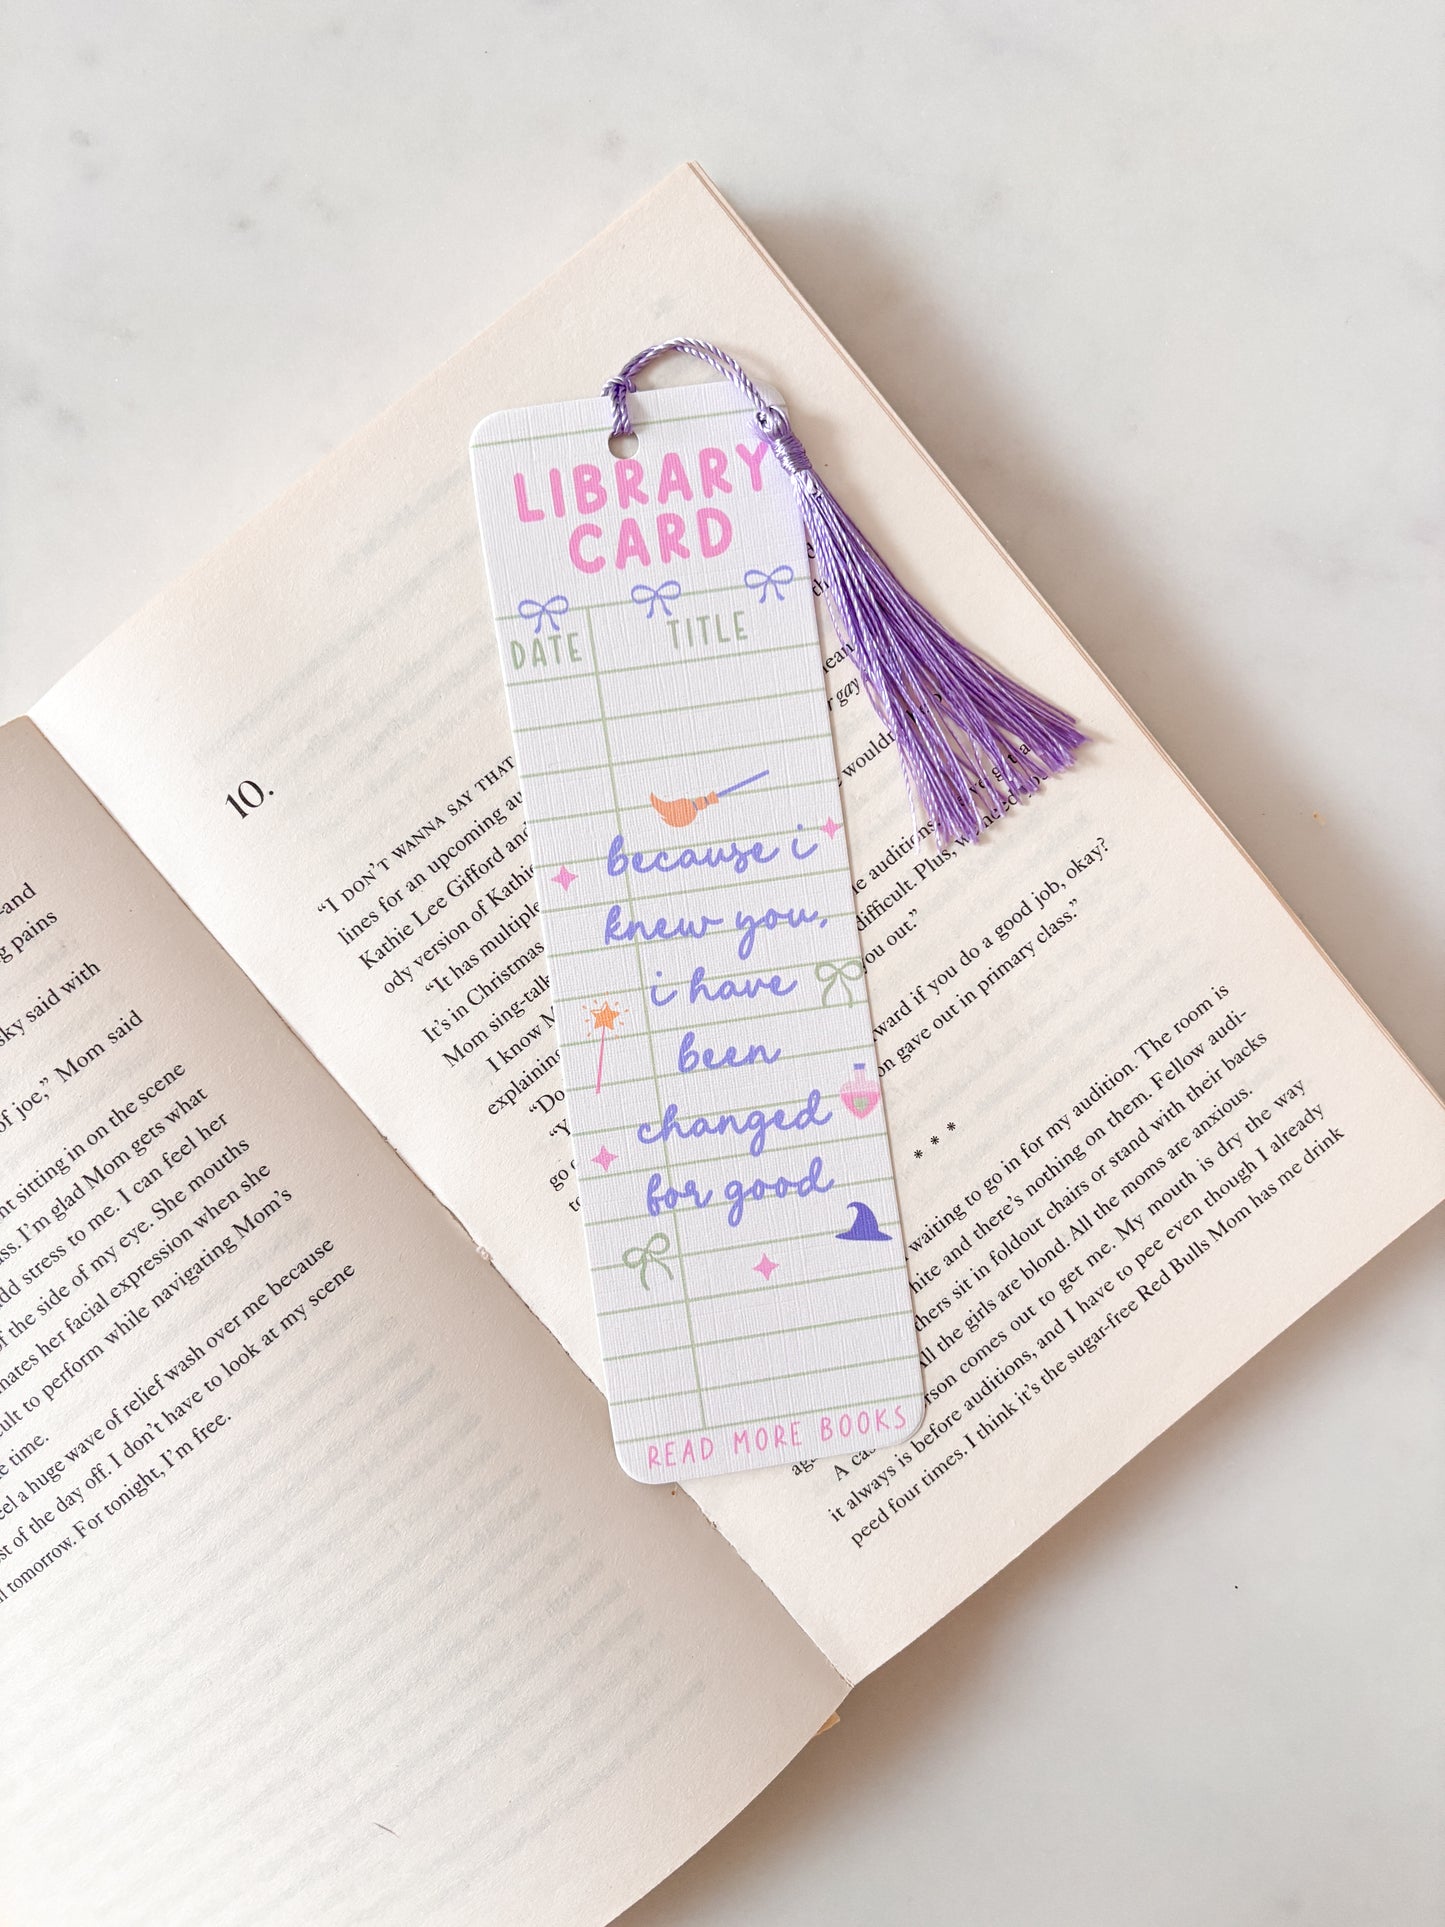 LIBRARY
CARD
DATE TITLE
because i
knew you,
i have
been
changed
for good
READ MORE BOOKS
-and
g pains
sky said with
of joe," Mom said
nt sitting in on the scene
ss. I'm glad Mom gets what
dd stress to me. I can feel her
of the side of my eye. She mouths
nates her facial expression when she
cult to perform while navigating Mom's
e time.
eel a huge wave of relief wash over me because
st of the day off. I don't have to look at my scene
tomorrow. For tonight, I'm free.
10.
"I DON'T WANNA SAY THAT
lines for an upcoming au
Kathie Lee Gifford and
ody version of Kathie
"It has multiple
It's in Christmas
Mom sing-talk
I know M
explaining
"Do
"Y
go
to
th
ean
r gay
wouldn
e auditions
difficult. Plus, we need you
ou out."
ward if you do a good job, okay?
on gave out in primary class."
* * *
waiting to go in for my audition. The room is
hite and there's nothing on them. Fellow audi-
thers sit in foldout chairs or stand with their backs
All the girls are blond. All the moms are anxious.
rson comes out to get me. My mouth is dry the way
it always is before auditions, and I have to pee even though I already
peed four times. I think it's the sugar-free Red Bulls Mom has me drink